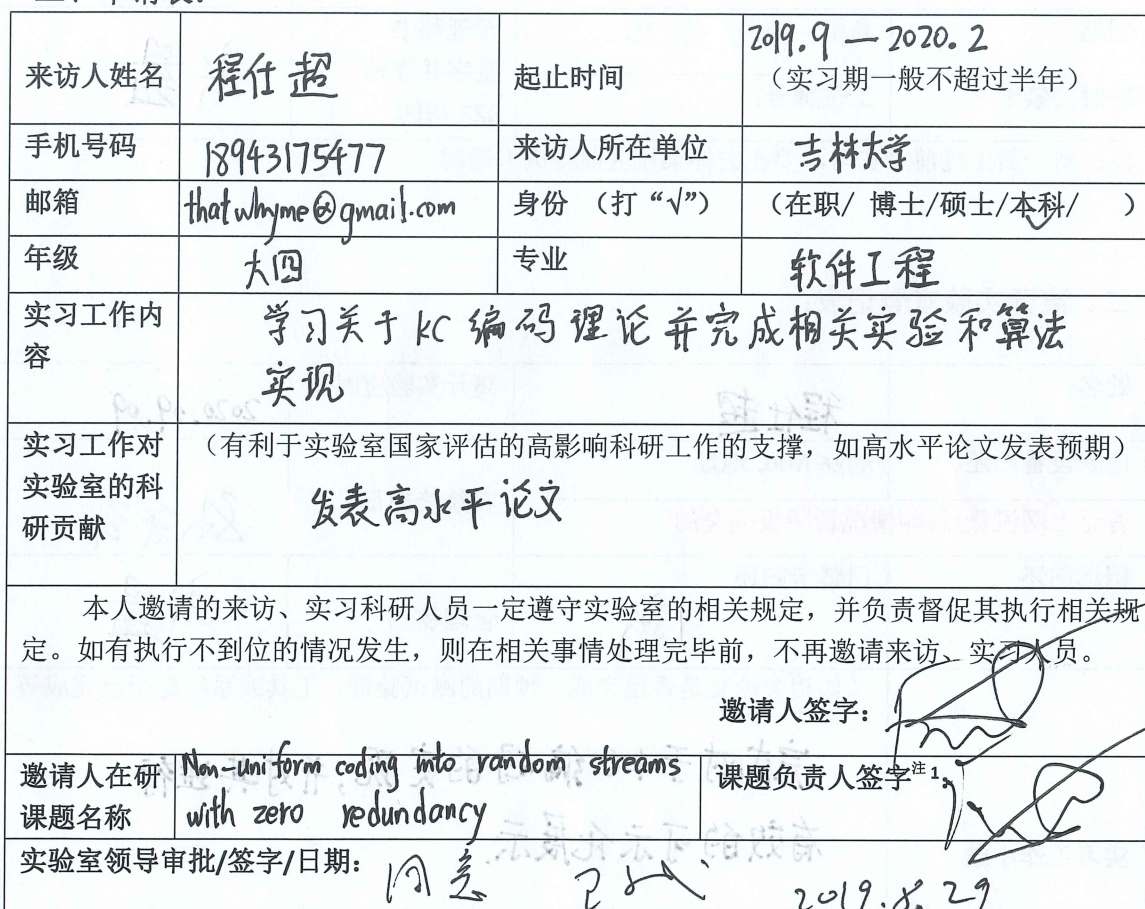 来访人姓名 程仕超 起止时间 2019.9 — 2020.2
（实习期一般不超过半年）
手机号码 18943175477 来访人所在单位 吉林大学
邮箱 thatwhyme@gmail.com 身份 （打“√”） （在职/ 博士/硕士/本科/ ）
年级 大四 专业 软件工程
实习工作内容 学习关于 KC 编码理论并完成相关实验和算法
实现
实习工作对
实验室的科
研贡献
（有利于实验室国家评估的高影响科研工作的支撑，如高水平论文发表预期）
发表高水平论文
本人邀请的来访、实习科研人员一定遵守实验室的相关规定，并负责督促其执行相关规
定。如有执行不到位的情况发生，则在相关事情处理完毕前，不再邀请来访、实习人员。
邀请人签字：
邀请人在研
课题名称
Non-uniform coding into random streams
with zero redundancy
课题负责人签字注 1：
实验室领导审批/签字/日期： 同意 2019.8.29